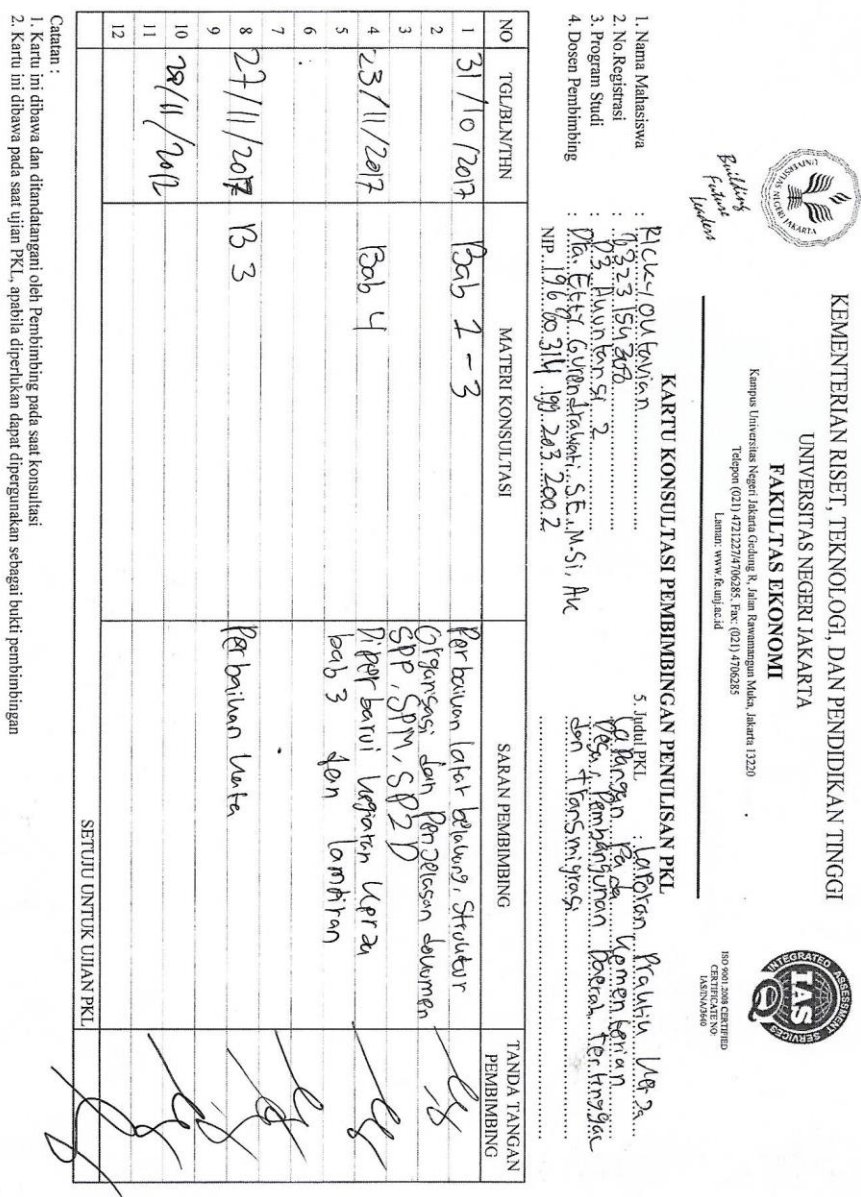 KEMENTERIAN RISET, TEKNOLOGI, DAN PENDIDIKAN TINGGI
UNIVERSITAS NEGERI JAKARTA
FAKULTAS EKONOMI
Kampus Universitas Negeri Jakarta Gedung R, Jalan Rawamangun Muka, Jakarta 13220
Telepon (021) 4721227/4706285, Fax: (021) 4706285
Laman: www.fe.unj.ac.id
UNIVERSITAS NEGERI JAKARTA
Building
Future
Leaders
INTEGRATED ASSESSMENT SERVICES
IAS
ISO 9001:2008 CERTIFIED
CERTIFICATE NO:
IAS/INA/3640
KARTU KONSULTASI PEMBIMBINGAN PENULISAN PKL
1. Nama Mahasiswa : Ricky Outavian
2. No.Registrasi : 8323154300
3. Program Studi : D3 Auuntansi 2
4. Dosen Pembimbing : Dra. Etty Gurendrawati, S.E, M-Si, Au
NIP. 19680314 199 203 2002
5. Judul PKL : Laporan Prautiu Uerja
Lapangan Pada Uementerian
Desa, Pembangunan Daerah Tertinggal
dan Transmigrasi
NO TGL/BLN/THN MATERI KONSULTASI SARAN PEMBIMBING TANDA TANGAN PEMBIMBING
1 31/10/2017 Bab 1-3 Perbaiuan latar belauang, Struutur
2 Organisasi dan Penjelasan douumen
3 SPP, SPM, SP2D
4 23/11/2017 Bab 4 Diperbarui uegiatan uerja
5 bab 3 dan lampiran
6
7
8 27/11/2017 B 3 Perbaiuan uata
9
10 28/11/2017
11
12
SETUJU UNTUK UJIAN PKL
Catatan :
1. Kartu ini dibawa dan ditandatangani oleh Pembimbing pada saat konsultasi
2. Kartu ini dibawa pada saat ujian PKL, apabila diperlukan dapat dipergunakan sebagai bukti pembimbingan